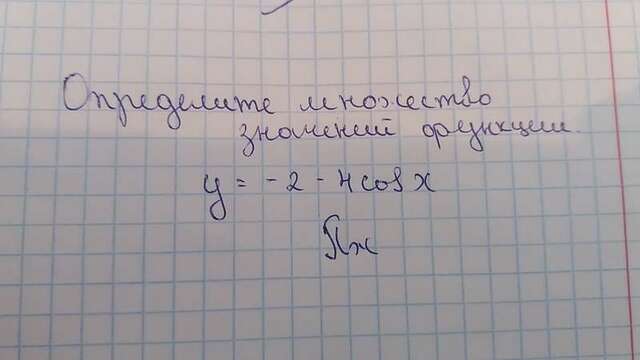 Определите множество
значений функции.
y = -2 - 4cos x